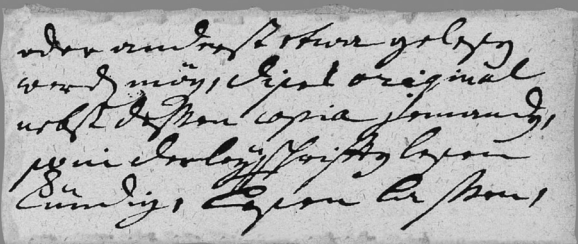 oder anderst etwa geleßen
werden mög, dißes original
nebst deßen copia jemandten,
so in derleÿ schrifften lesen
kündig, leßen laßen,